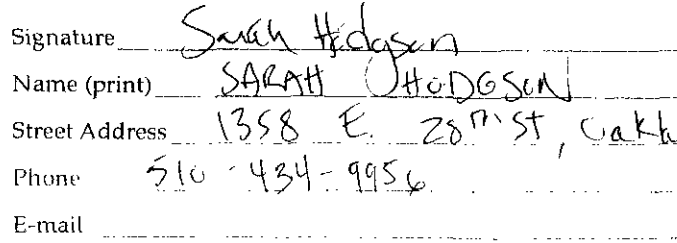 Signature Sarah Hodgson
Name (print) SARAH HODGSON
Street Address 1358 E. 28th ST, Oakla
Phone 510-434-9956
E-mail